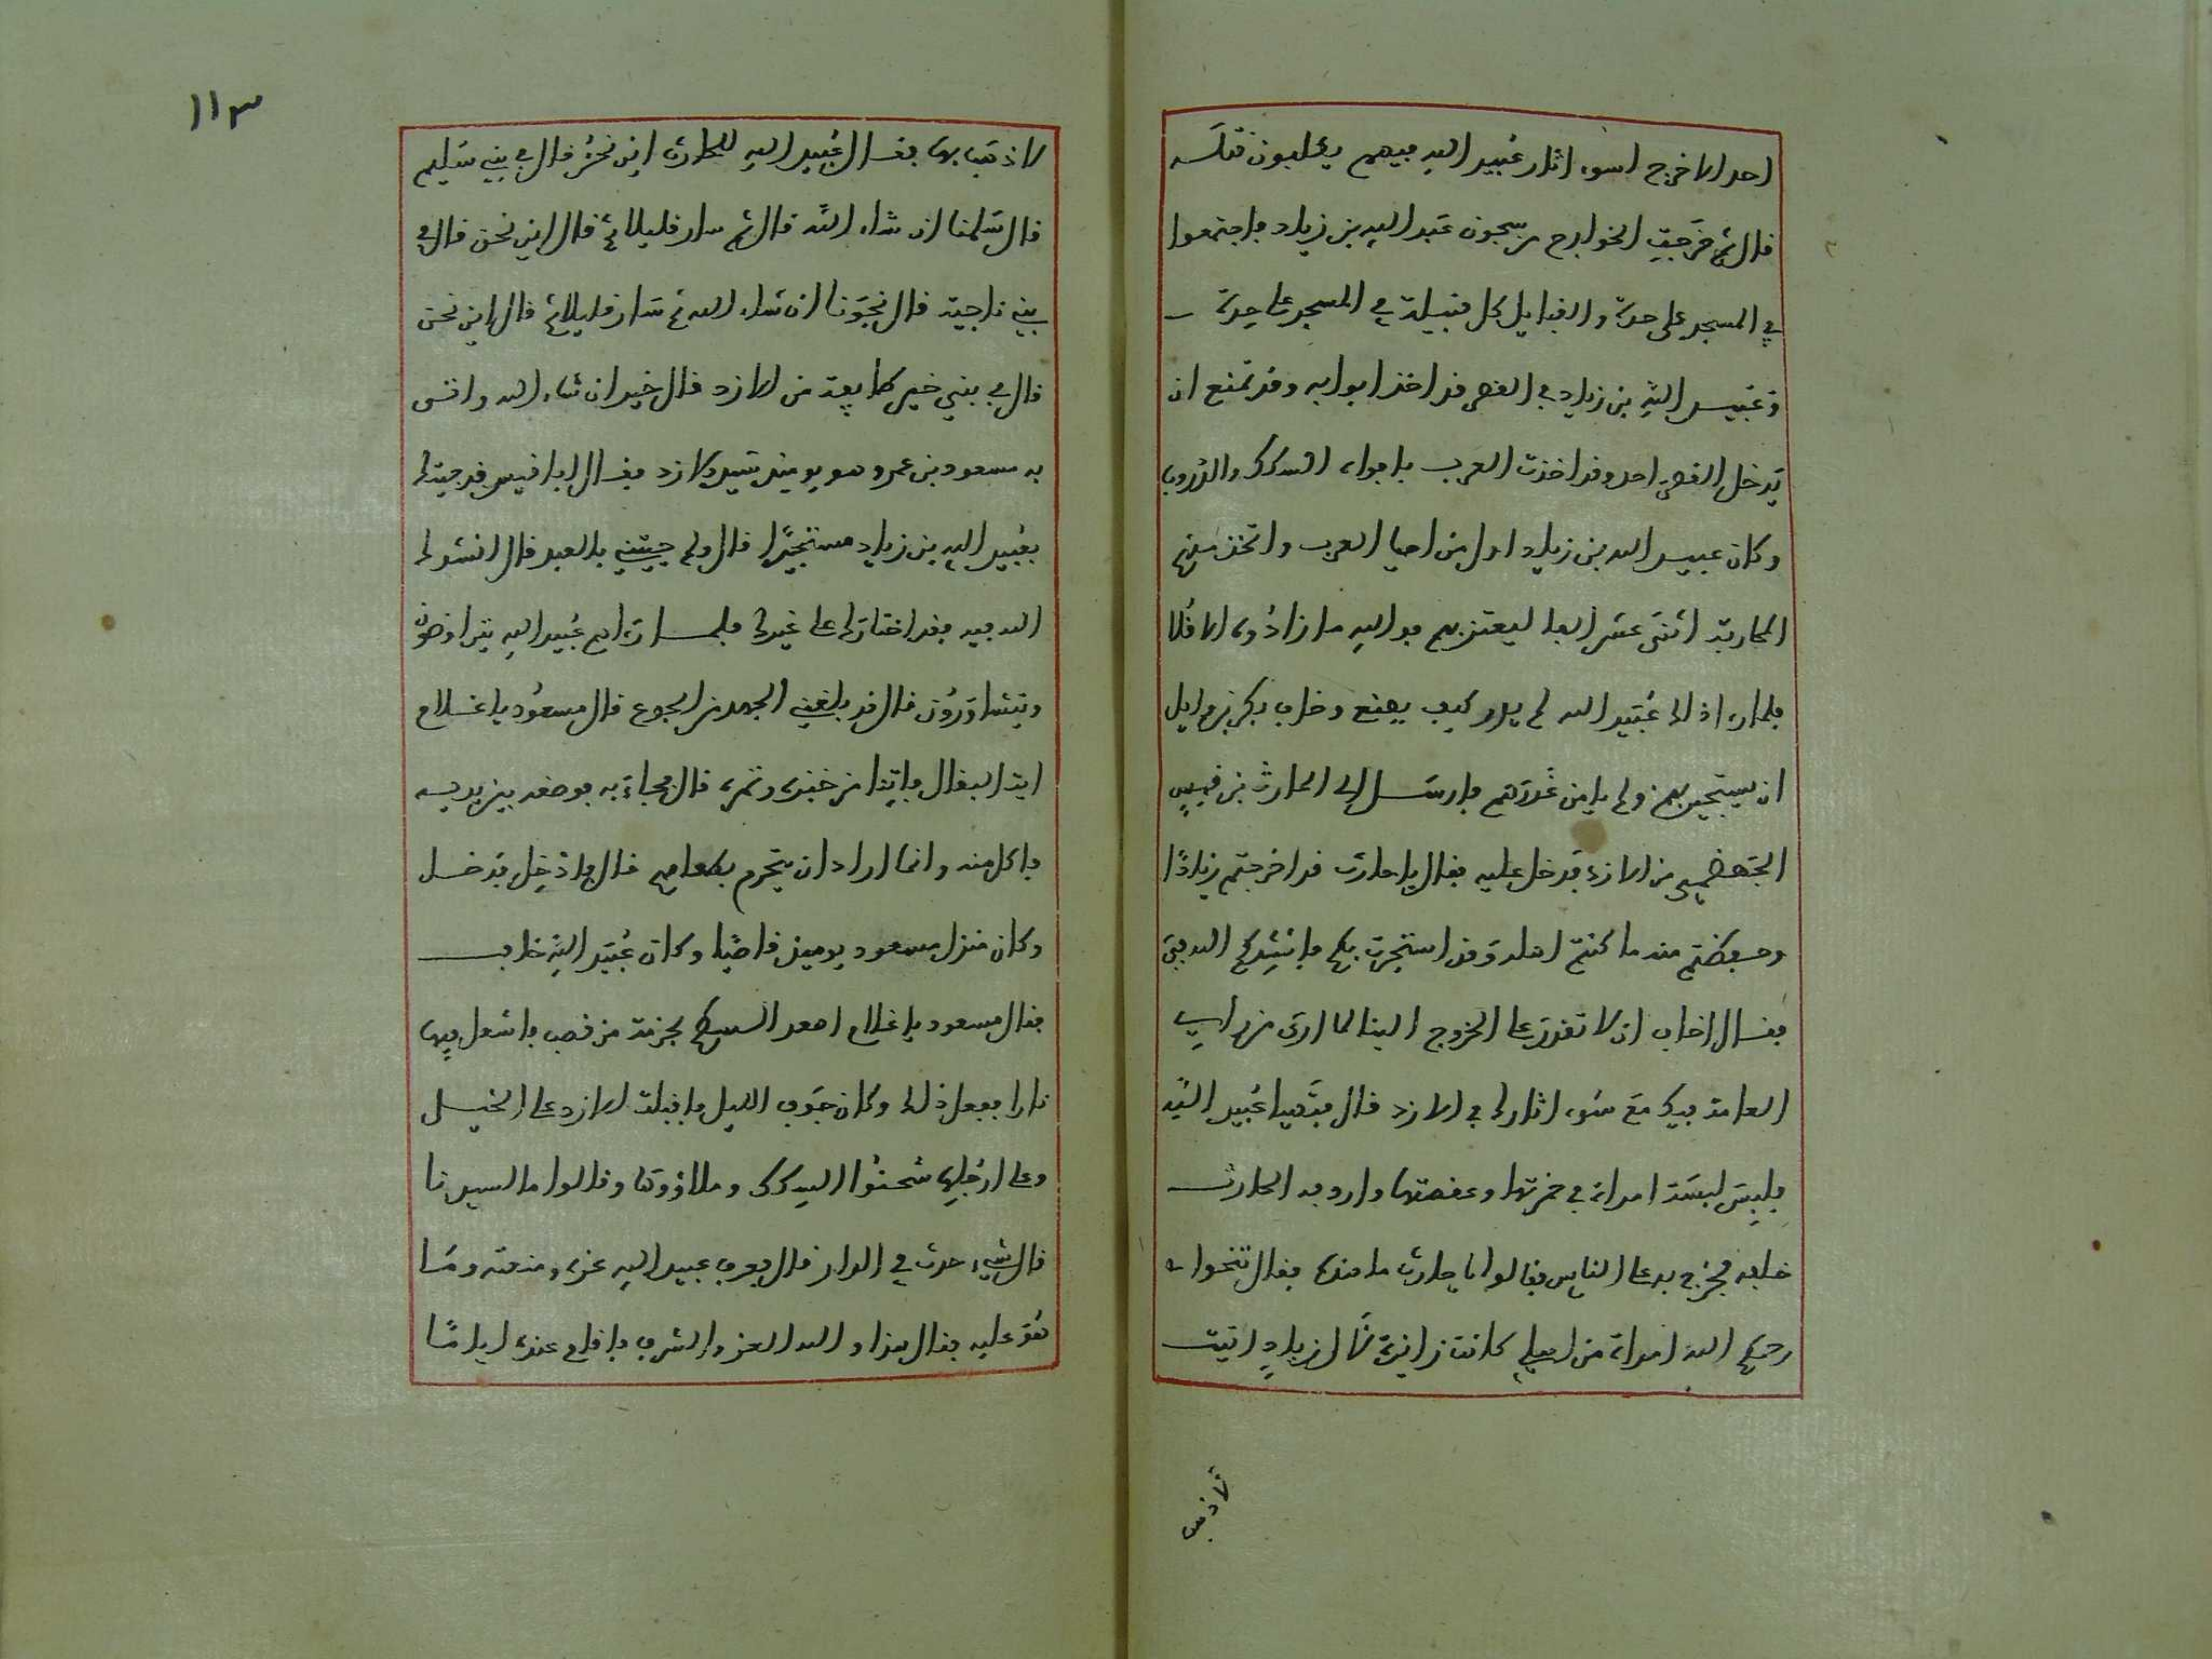 احد الا خرج لسوء اثار عبيد الله فيهم يطلبون قتله
قال ثم خرجت الخوارج من سجون عبيد الله بن زياد فاجتمعوا
في المسجد على حدة والقبايل كل قبيلة في المسجد على حدة
وعبيد الله بن زياد في القصر قد اخذ ابوابه وقد تمنع ان
يدخل القصر احد وقد اخذت العرب بافواه السكك والدروب
وكان عبيد الله بن زياد اول من احيا العرب واتخذ منهم
المحاربة اثنى عشر الفا ليعتز بهم فوالله ما زادوه الا ذلا
فلما راى ذلك عبيد الله لم يدر كيف يصنع وخاف بكر بن وايل
ان يستجير بهم ولم يامن غدرهم فارسل الى الحارث بن قيس
الجهضمي من الازد فدخل عليه فقال يا حارث قد اخرجتم زيادا
وحفظتم منه ما كنتم اهله وقد استجرت بكم فانشدكم الله في
فقال اخاف ان لا تقدر على الخروج الينا لما ارى من راي
العامة فيك مع سوء اثارك في الازد قال فتهيا عبيد الله
فلبس لبسة امراة في خمرتها وعقصتها واردفه الحارث
خلفه فخرج به على الناس فقالوا يا حارث ما هذه فقال تنحوا
رحمكم الله امراة من اهلي كانت زائرة لآل زياد اتيت
لاذهب
١١٣
لاذهب بها فقال عبيد الله للحارث اين نحن قال في بني سليم
قال سلمنا ان شاء الله قال ثم سار قليلا ثم قال اين نحن قال في
بني ناجية قال نجونا ان شاء الله ثم سار قليلا ثم قال اين نحن
قال في بني خير طايفة من الازد قال خير ان شاء الله واتى
به مسعود بن عمرو هو يومئذ سيد الازد فقال ابا قيس قد جيتك
بعبيد الله بن زياد مستجيرا قال ولم جيتني بالعبد قال انشدك
الله فيه فقد اختارك على غيرك فلما راهم عبيد الله يتراوضون
ويتشاورون قال قد بلغني الجهد والجوع قال مسعود يا غلام
ايت البقال فاتنا من خبزه وتمره قال فجاء به فوضعه بين يديه
فاكل منه وانما اراد ان يتحرم بطعامهم قال ثم ادخل فدخل
وكان منزل مسعود يوميذ قاصيا وكان عبيد الله خايف
فقال مسعود يا غلام اصعد السطح بحزمة من قصب فاشعل فيها
نارا ففعل ذلك وكان جوف الليل فاقبلت الازد على الخيل
وعلى ارجلها شحنوا السكك وملاؤوها وقالوا ما لسيدنا
قال شيء حدث في الدار قال فعرف عبيد الله عزه ومنعته وما
هو عليه فقال هذا والله العز والشرف فاقام عنده اياما